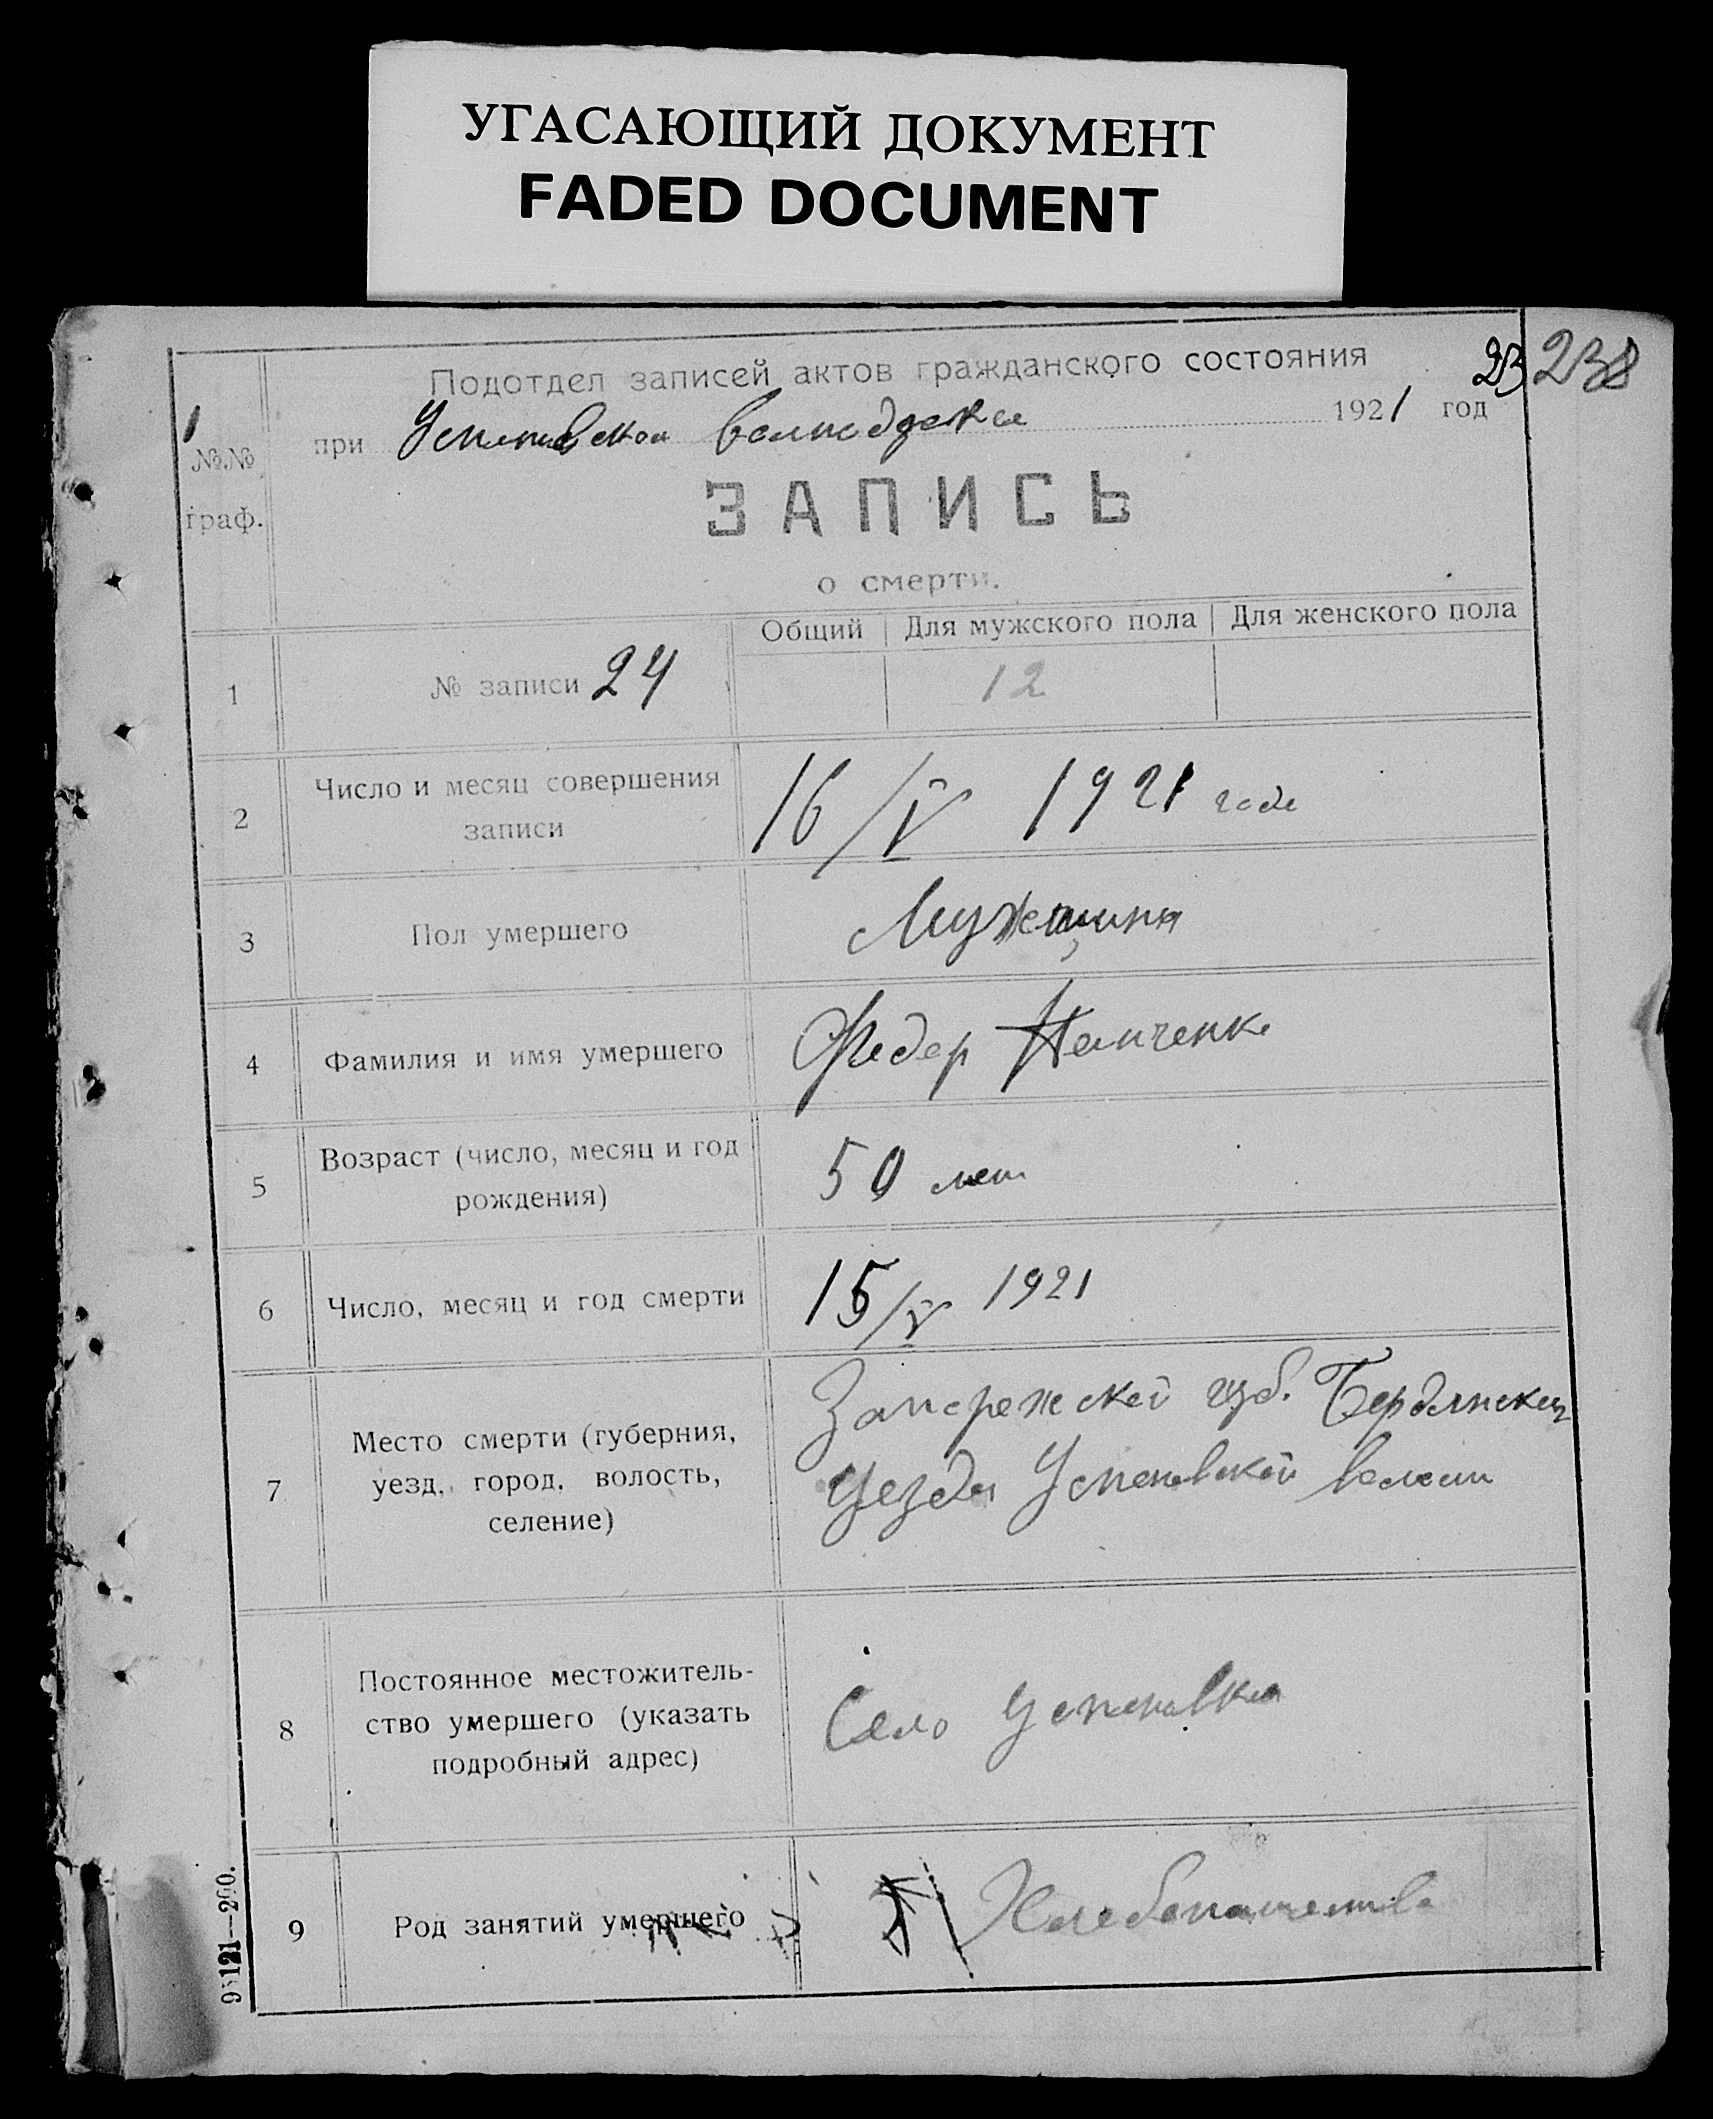 УГАСАЮЩИЙ ДОКУМЕНТ
FADED DOCUMENT
23 238
Подотдел записей актов гражданского состояния
при Успеновском 1921 год
№№ граф.
ЗАПИСЬ
о смерти.
Общий Для мужского пола Для женского пола
1 № записи 24 12
2 Число и месяц совершения
записи
16/V 1921 года
3 Пол умершего Мужещина
4 Фамилия и имя умершего Федор
5 Возраст (число, месяц и год
рождения)
50 лет
6 Число, месяц и год смерти 15/V 1921
7 Место смерти (губерния,
уезд, город, волость,
селение)
Запорежской губ. Бердянском
Уезда Успеновской волости
8 Постоянное местожитель-
ство умершего (указать
подробный адрес)
Село Успеновка
9 Род занятий умершего Хлебопашество